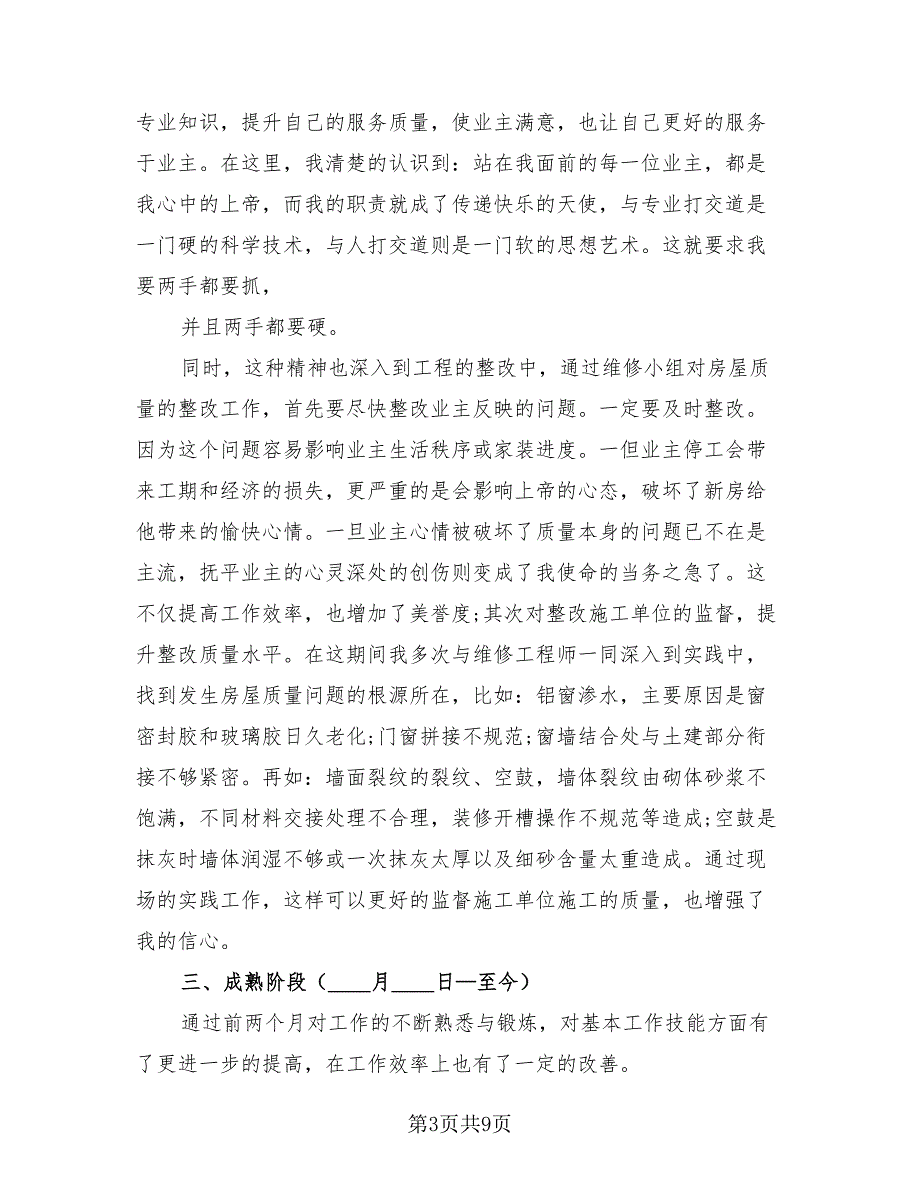 专业知识，提升自己的服务质量，使业主满意，也让自己更好的服务
于业主。在这里，我清楚的认识到：站在我面前的每一位业主，都是
我心中的上帝，而我的职责就成了传递快乐的天使，与专业打交道是
一门硬的科学技术，与人打交道则是一门软的思想艺术。这就要求我
要两手都要抓，
并且两手都要硬。
同时，这种精神也深入到工程的整改中，通过维修小组对房屋质
量的整改工作，首先要尽快整改业主反映的问题。一定要及时整改。
因为这个问题容易影响业主生活秩序或家装进度。一但业主停工会带
来工期和经济的损失，更严重的是会影响上帝的心态，破坏了新房给
他带来的愉快心情。一旦业主心情被破坏了质量本身的问题已不在是
主流，抚平业主的心灵深处的创伤则变成了我使命的当务之急了。这
不仅提高工作效率，也增加了美誉度;其次对整改施工单位的监督，提
升整改质量水平。在这期间我多次与维修工程师一同深入到实践中，
找到发生房屋质量问题的根源所在，比如：铝窗渗水，主要原因是窗
密封胶和玻璃胶日久老化;门窗拼接不规范;窗墙结合处与土建部分衔
接不够紧密。再如：墙面裂纹的裂纹、空鼓，墙体裂纹由砌体砂浆不
饱满，不同材料交接处理不合理，装修开槽操作不规范等造成;空鼓是
抹灰时墙体润湿不够或一次抹灰太厚以及细砂含量太重造成。通过现
场的实践工作，这样可以更好的监督施工单位施工的质量，也增强了
我的信心。
三、成熟阶段（____月____日—至今）
通过前两个月对工作的不断熟悉与锻炼，对基本工作技能方面有
了更进一步的提高，在工作效率上也有了一定的改善。
第3页共9页